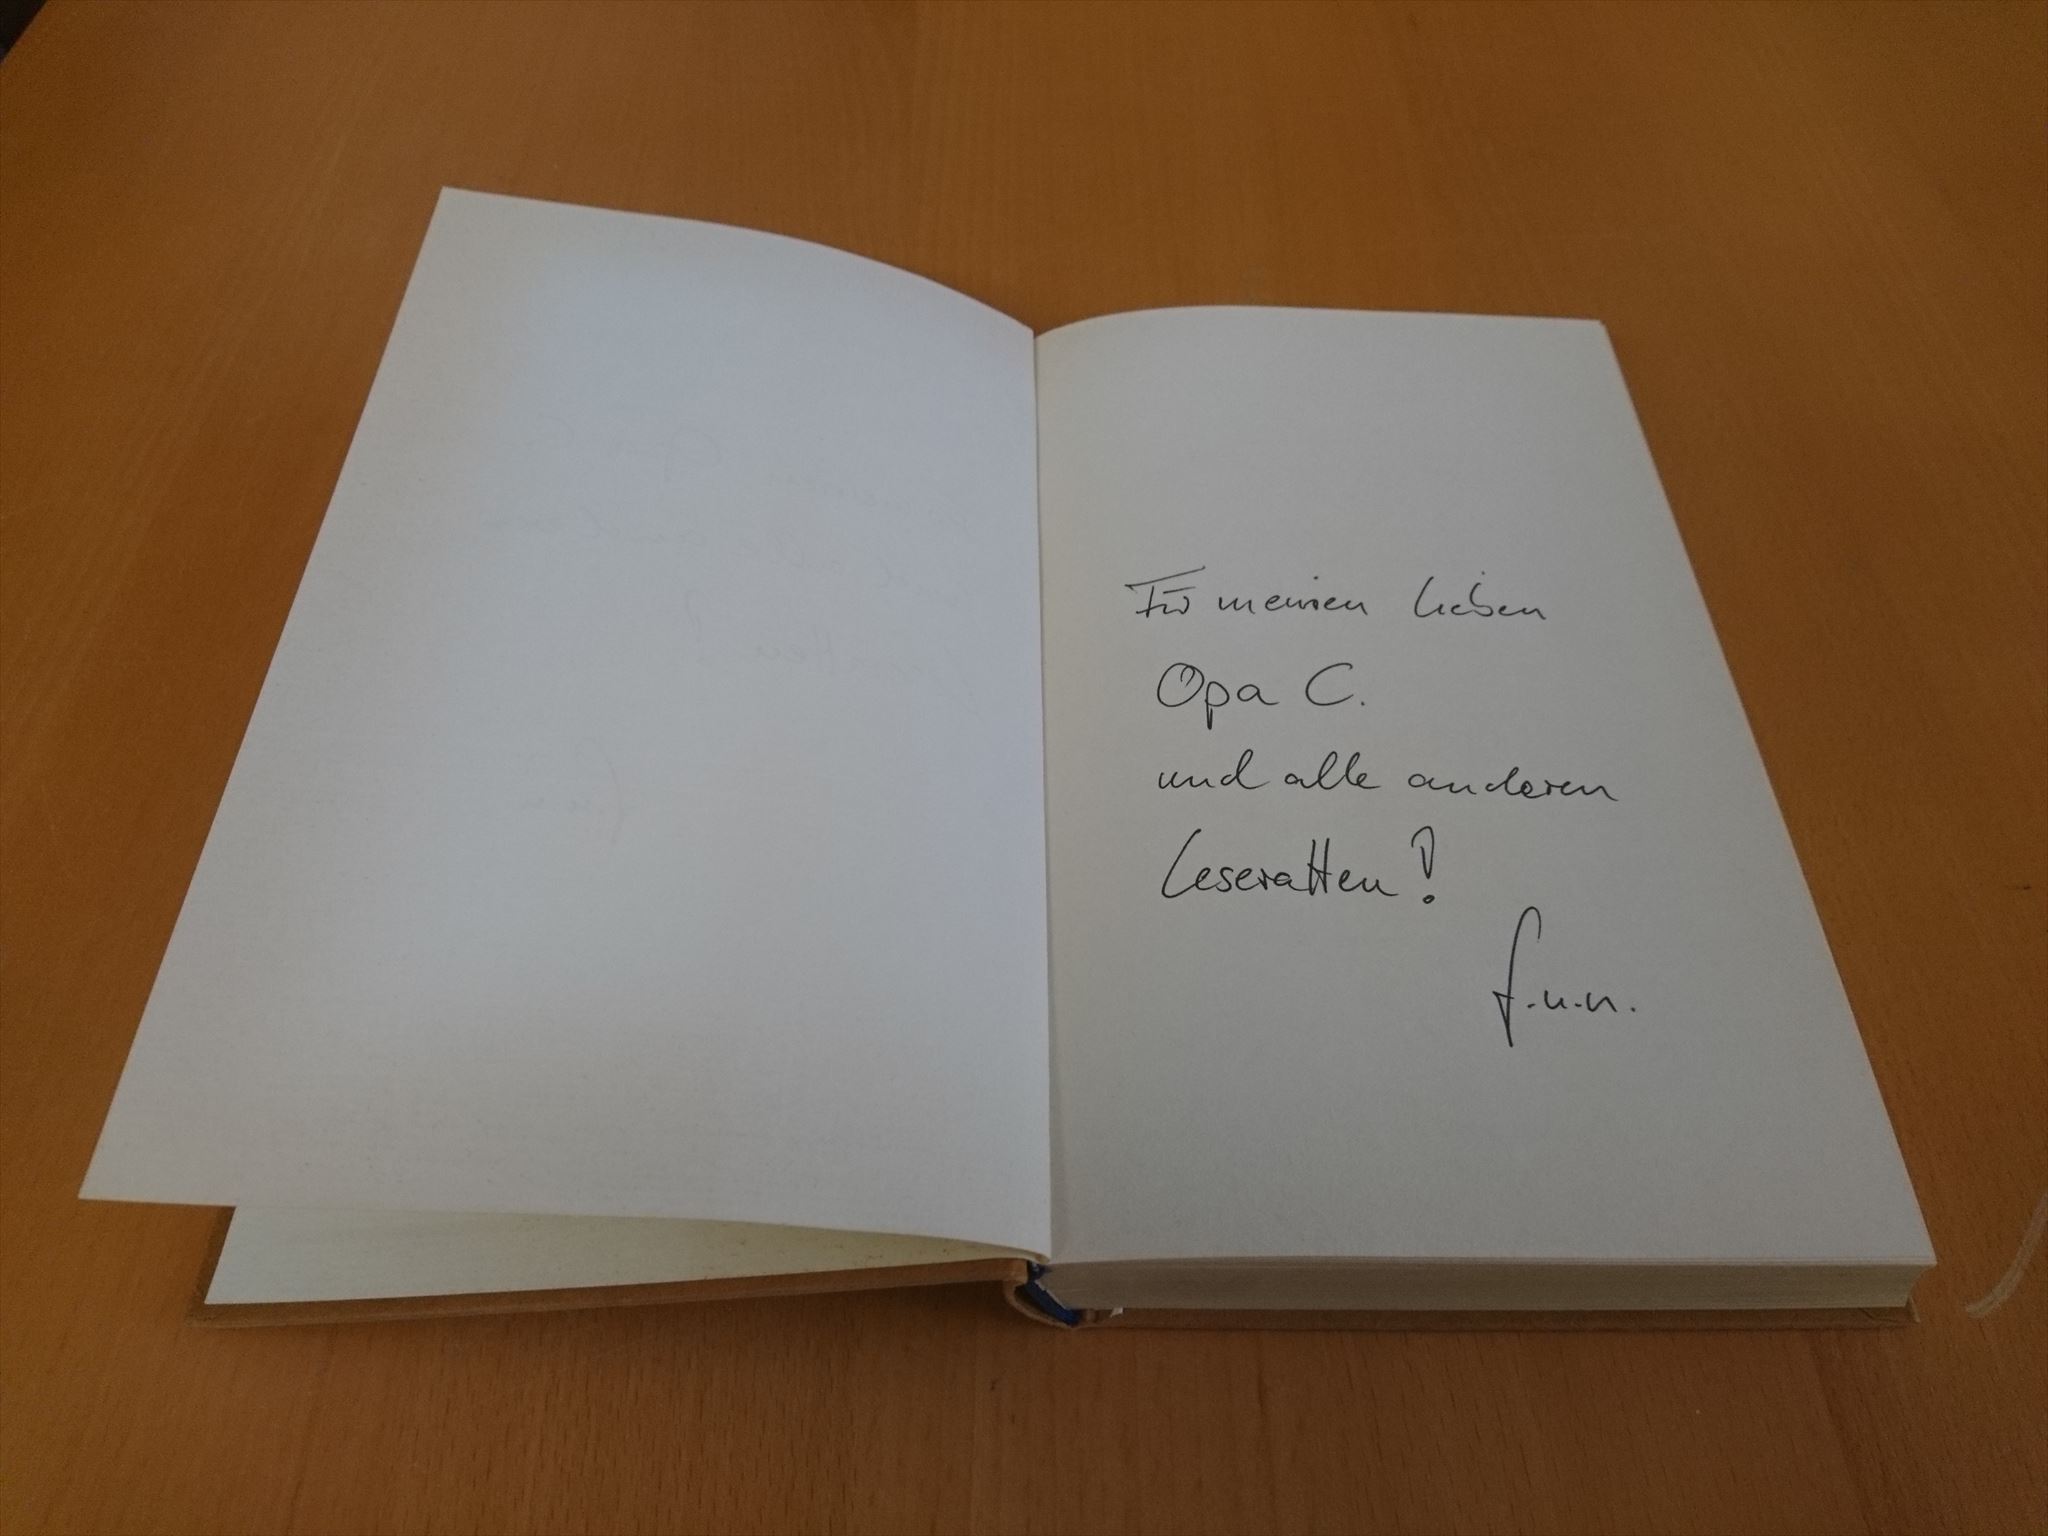 Für meinen lieben
Opa C.
und alle anderen
Leseratten!
f.u.n.